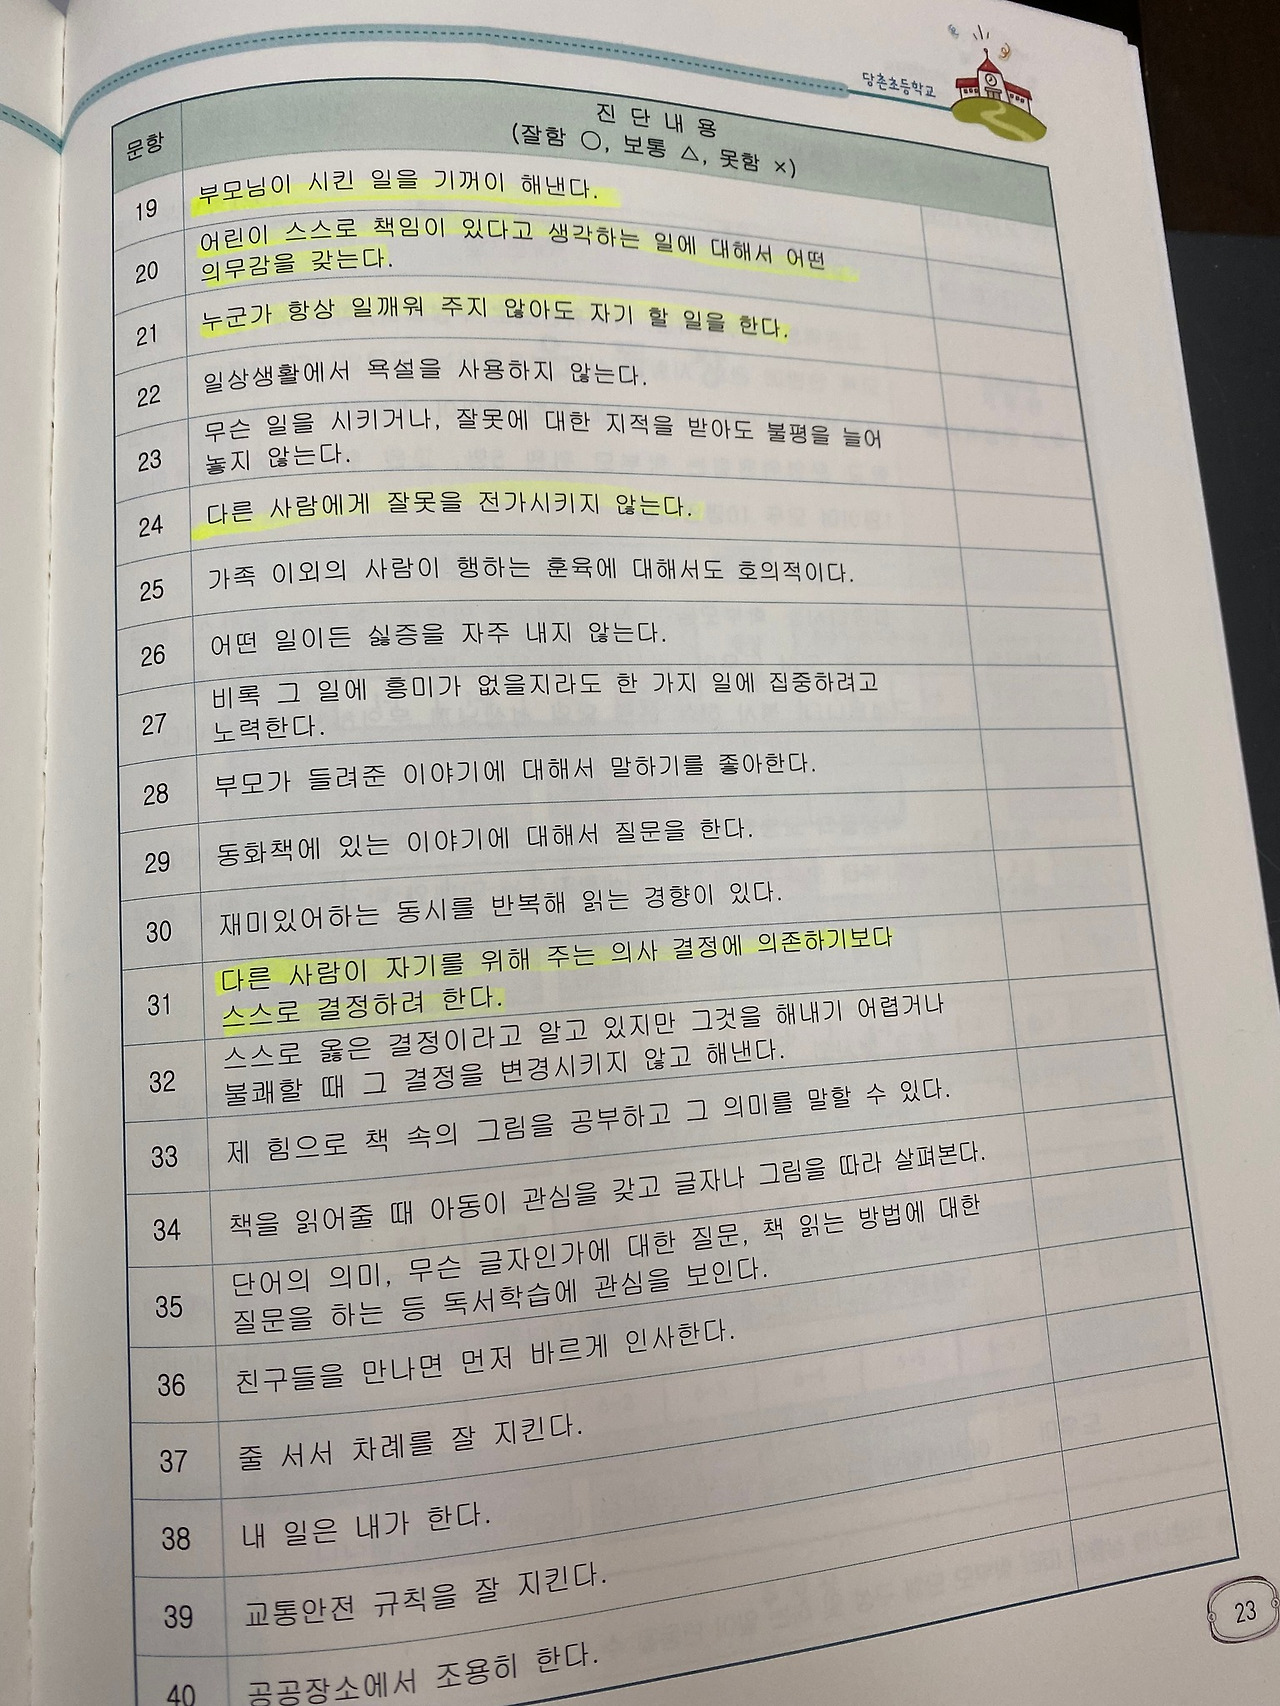 당촌초등학교
문항
진 단 내 용
(잘함 ○, 보통 △, 못함 ×)
19 부모님이 시킨 일을 기꺼이 해낸다.
20 어린이 스스로 책임이 있다고 생각하는 일에 대해서 어떤
의무감을 갖는다.
21 누군가 항상 일깨워 주지 않아도 자기 할 일을 한다.
22 일상생활에서 욕설을 사용하지 않는다.
23 무슨 일을 시키거나, 잘못에 대한 지적을 받아도 불평을 늘어
놓지 않는다.
24 다른 사람에게 잘못을 전가시키지 않는다.
25 가족 이외의 사람이 행하는 훈육에 대해서도 호의적이다.
26 어떤 일이든 싫증을 자주 내지 않는다.
27 비록 그 일에 흥미가 없을지라도 한 가지 일에 집중하려고
노력한다.
28 부모가 들려준 이야기에 대해서 말하기를 좋아한다.
29 동화책에 있는 이야기에 대해서 질문을 한다.
30 재미있어하는 동시를 반복해 읽는 경향이 있다.
31 다른 사람이 자기를 위해 주는 의사 결정에 의존하기보다
스스로 결정하려 한다.
32 스스로 옳은 결정이라고 알고 있지만 그것을 해내기 어렵거나
불쾌할 때 그 결정을 변경시키지 않고 해낸다.
33 제 힘으로 책 속의 그림을 공부하고 그 의미를 말할 수 있다.
34 책을 읽어줄 때 아동이 관심을 갖고 글자나 그림을 따라 살펴본다.
35 단어의 의미, 무슨 글자인가에 대한 질문, 책 읽는 방법에 대한
질문을 하는 등 독서학습에 관심을 보인다.
36 친구들을 만나면 먼저 바르게 인사한다.
37 줄 서서 차례를 잘 지킨다.
38 내 일은 내가 한다.
39 교통안전 규칙을 잘 지킨다.
40 공공장소에서 조용히 한다.
23